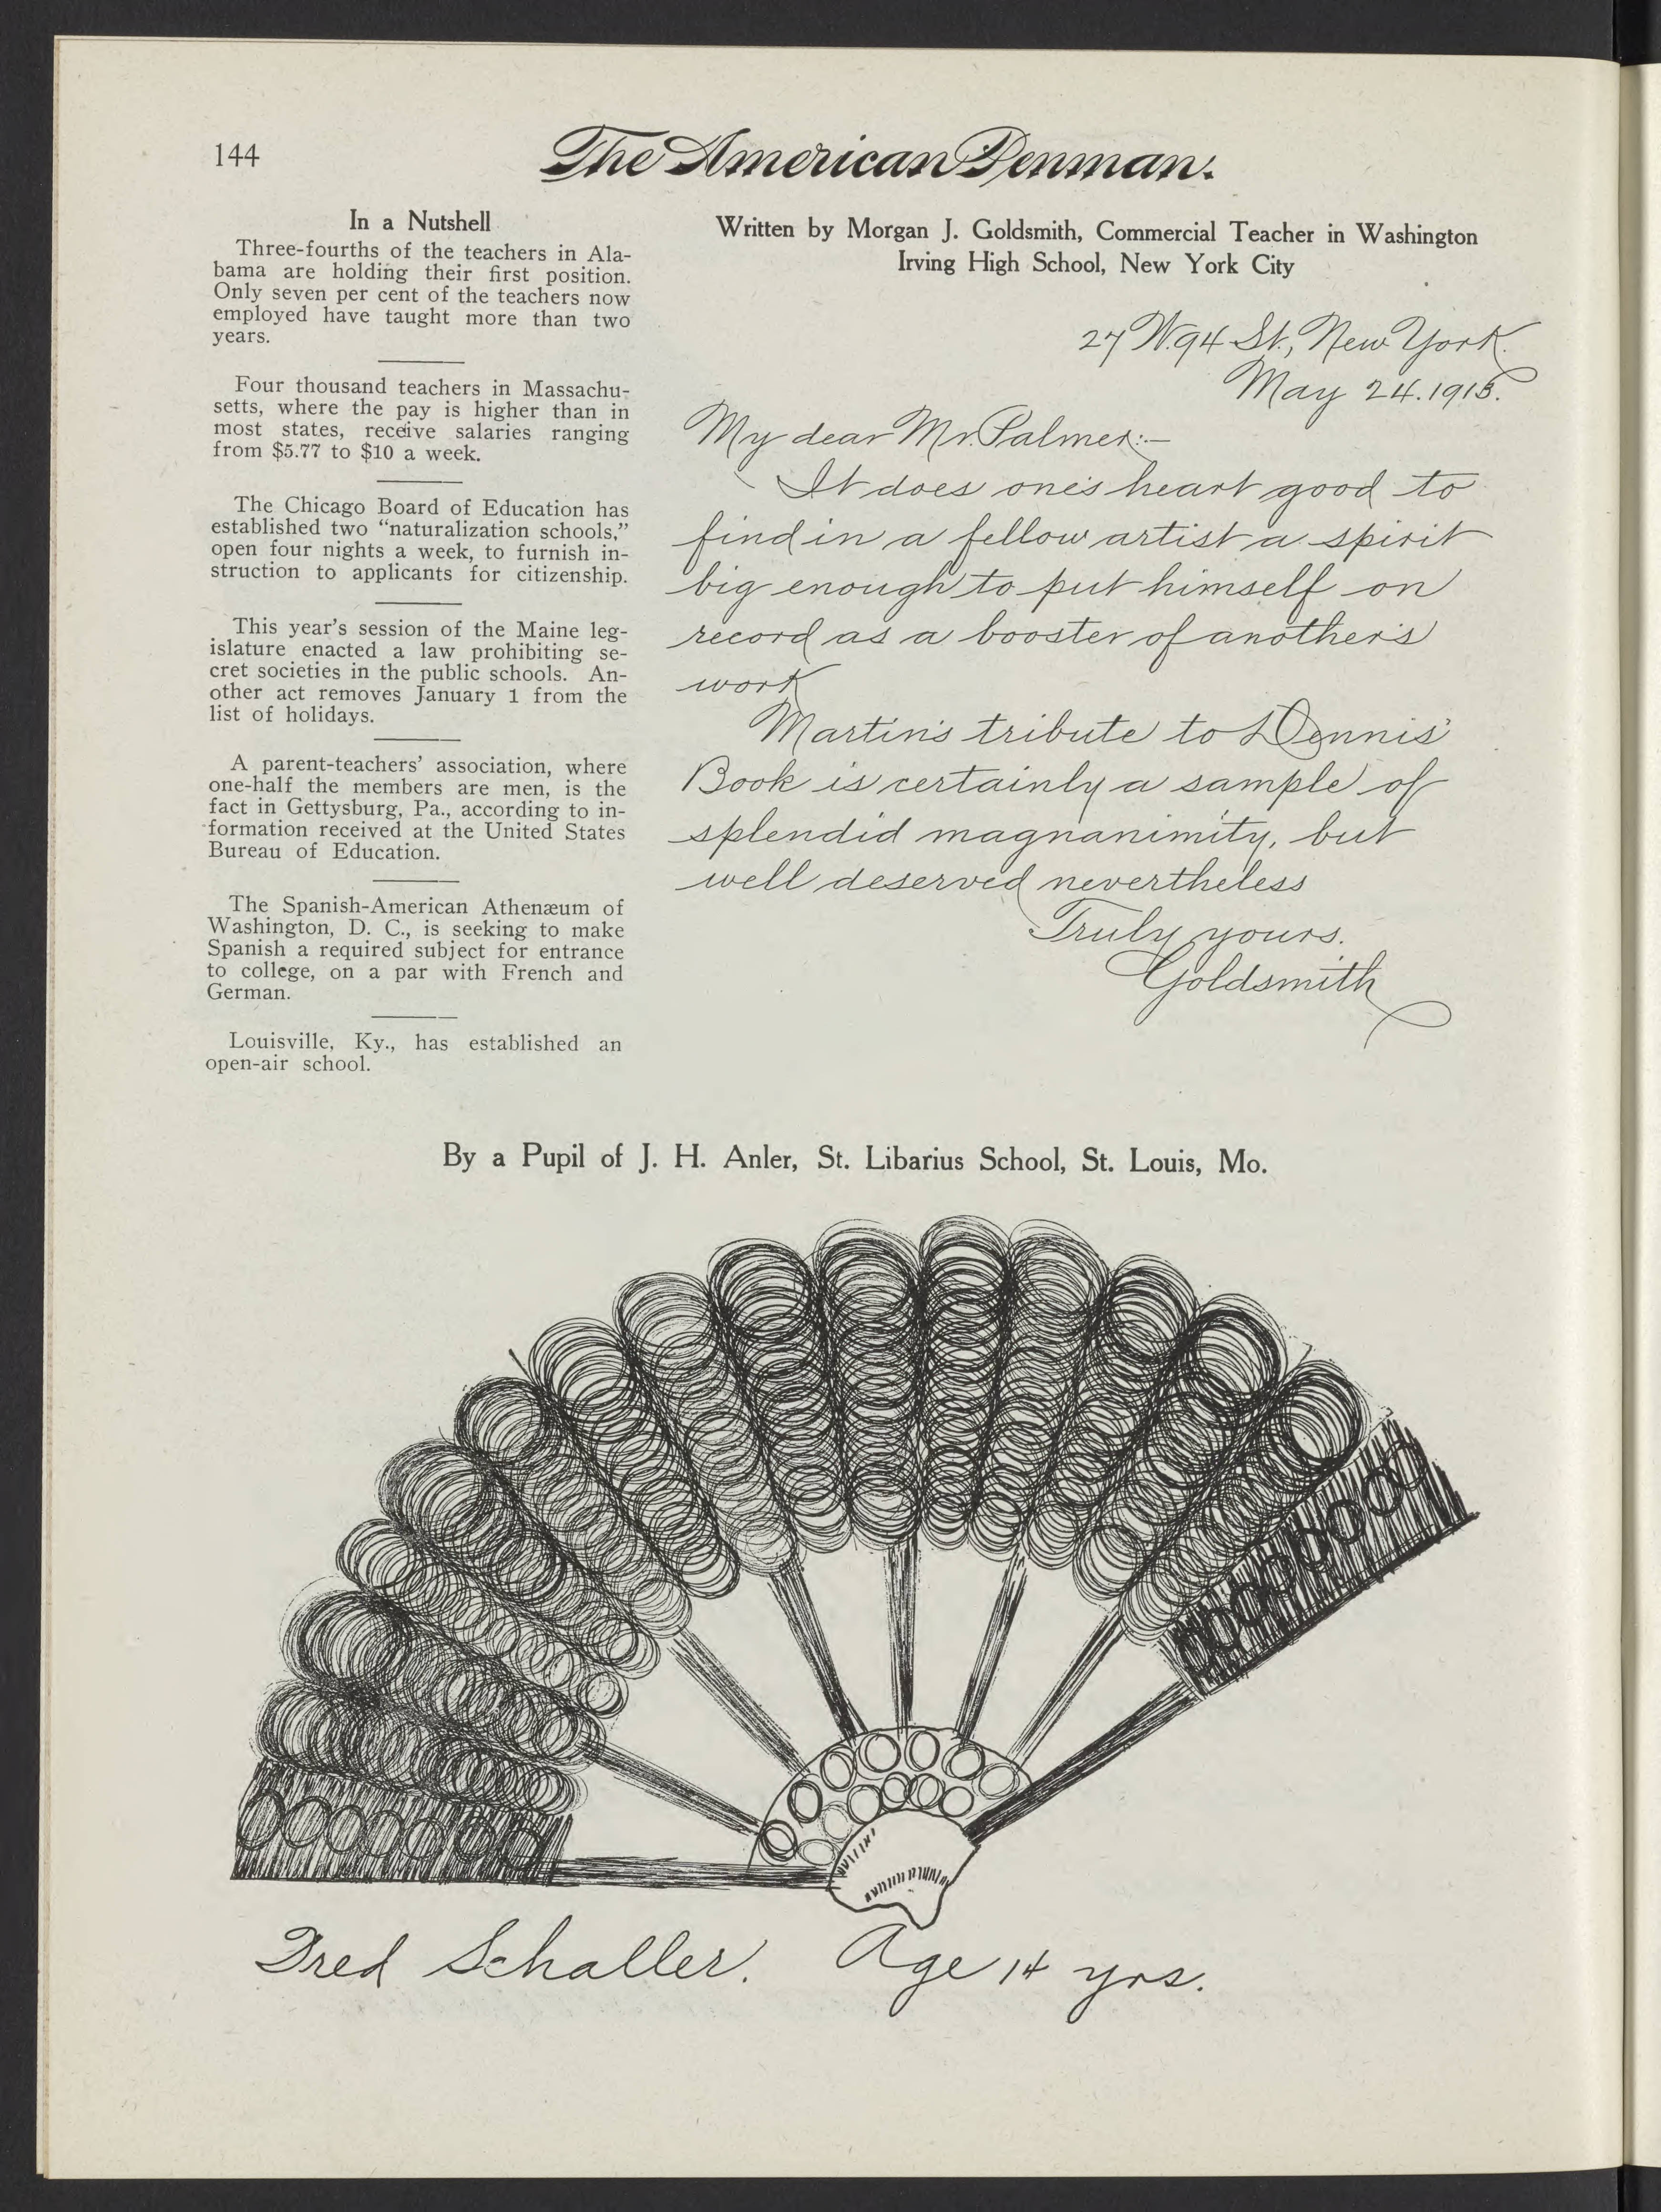 144
The American Penman.
In a Nutshell
Three-fourths of the teachers in Ala-
bama are holding their first position.
Only seven per cent of the teachers now
employed have taught more than two
years.
Four thousand teachers in Massachu-
setts, where the pay is higher than in
most states, receive salaries ranging
from $5.77 to $10 a week.
The Chicago Board of Education has
established two “naturalization schools,”
open four nights a week, to furnish in-
struction to applicants for citizenship.
This year’s session of the Maine leg-
islature enacted a law prohibiting se-
cret societies in the public schools. An-
other act removes January 1 from the
list of holidays.
A parent-teachers’ association, where
one-half the members are men, is the
fact in Gettysburg, Pa., according to in-
formation received at the United States
Bureau of Education.
The Spanish-American Athenæum of
Washington, D. C., is seeking to make
Spanish a required subject for entrance
to college, on a par with French and
German.
Louisville, Ky., has established an
open-air school.
Written by Morgan J. Goldsmith, Commercial Teacher in Washington
Irving High School, New York City
27 W. 94 St., New York.
May 24. 1915.
My dear Mr. Palmer:—
It does one's heart good to
find in a fellow artist a spirit
big enough to put himself on
record as a booster of another's
work
Martin's tribute to Dennis'
Book is certainly a sample of
splendid magnanimity, but
well deserved nevertheless
Truly yours.
Goldsmith
By a Pupil of J. H. Anler, St. Libarius School, St. Louis, Mo.
Fred Schaller. Age 14 yrs.